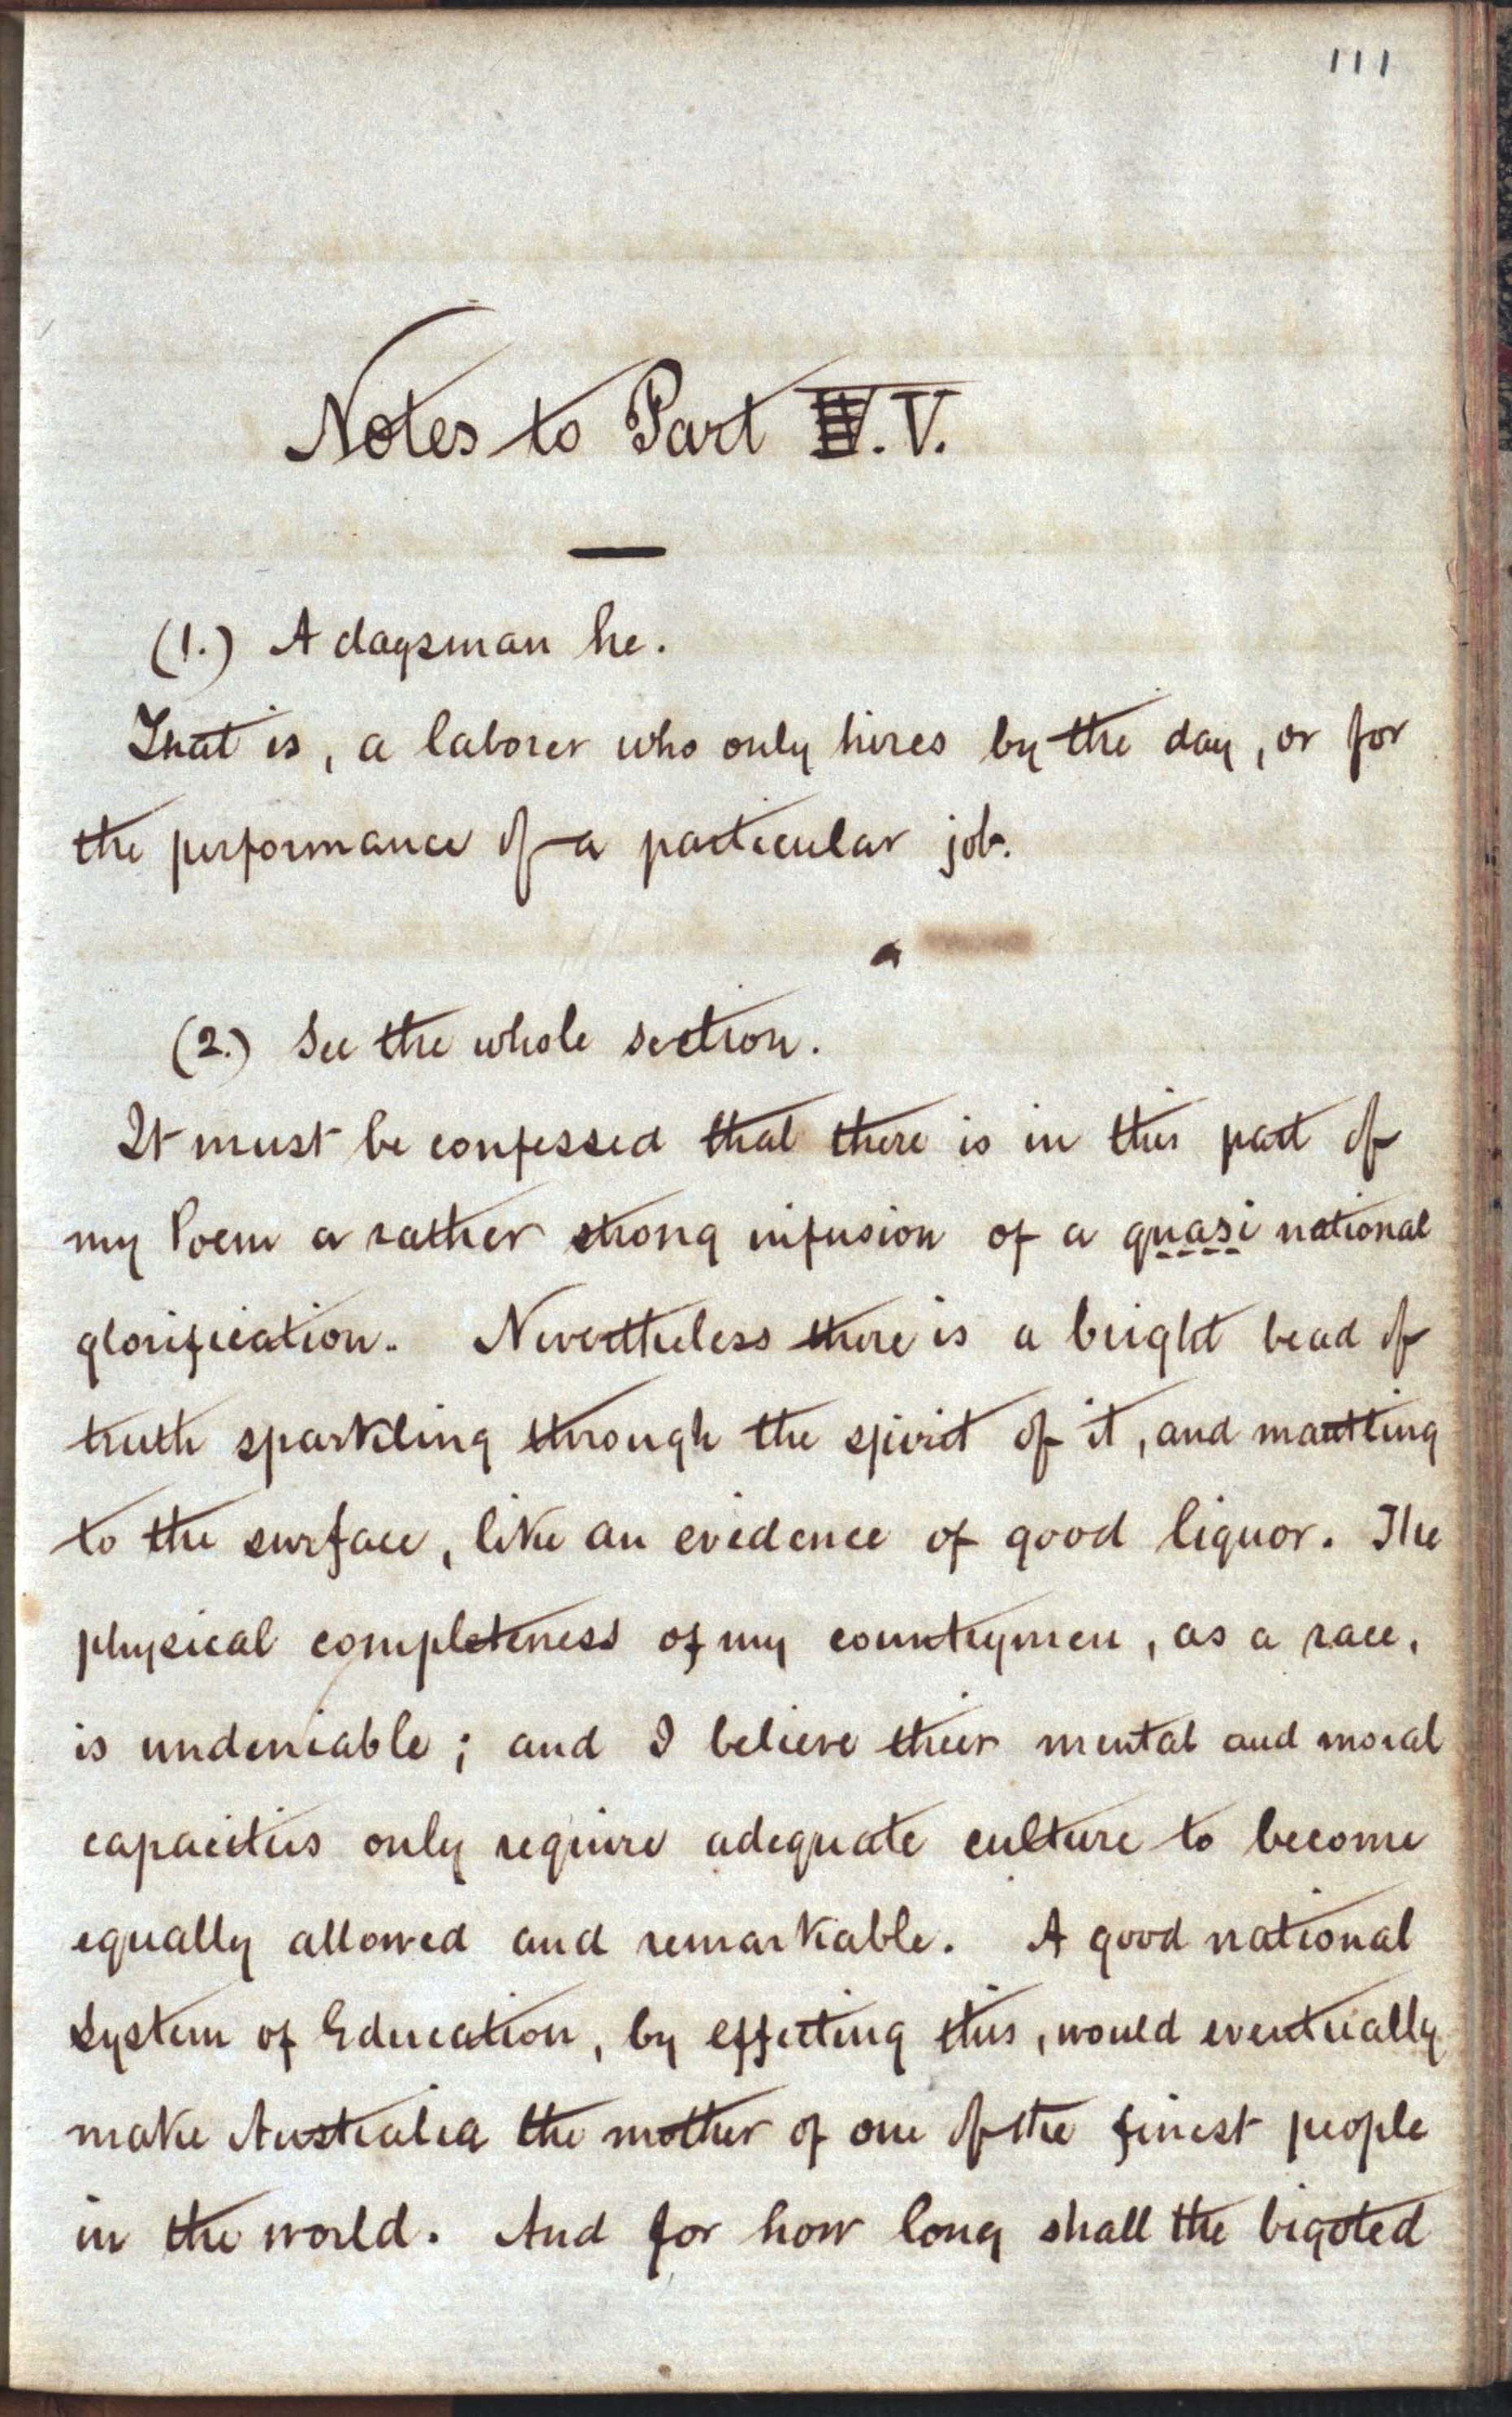 111
Notes to Part V.
(1.) A daysman he.
That is, a laborer who only hires by the day, or for
the performance of a particular job.
(2.) See the whole section.
It must be confessed that there is in this part of
my Poem a rather strong infusion of a quasi national
glorification. Nevertheless there is a bright bead of
truth sparkling through the spirit of it, and mantling
to the surface, like an evidence of good liquor. The
physical completeness of my countrymen, as a race,
is undeniable; and I believe their mental and moral
capacities only require adequate culture to become
equally allowed and remarkable. A good national
system of Education, by effecting this, would eventually
make Australia the mother of one of the finest people
in the world. And for how long shall the bigoted